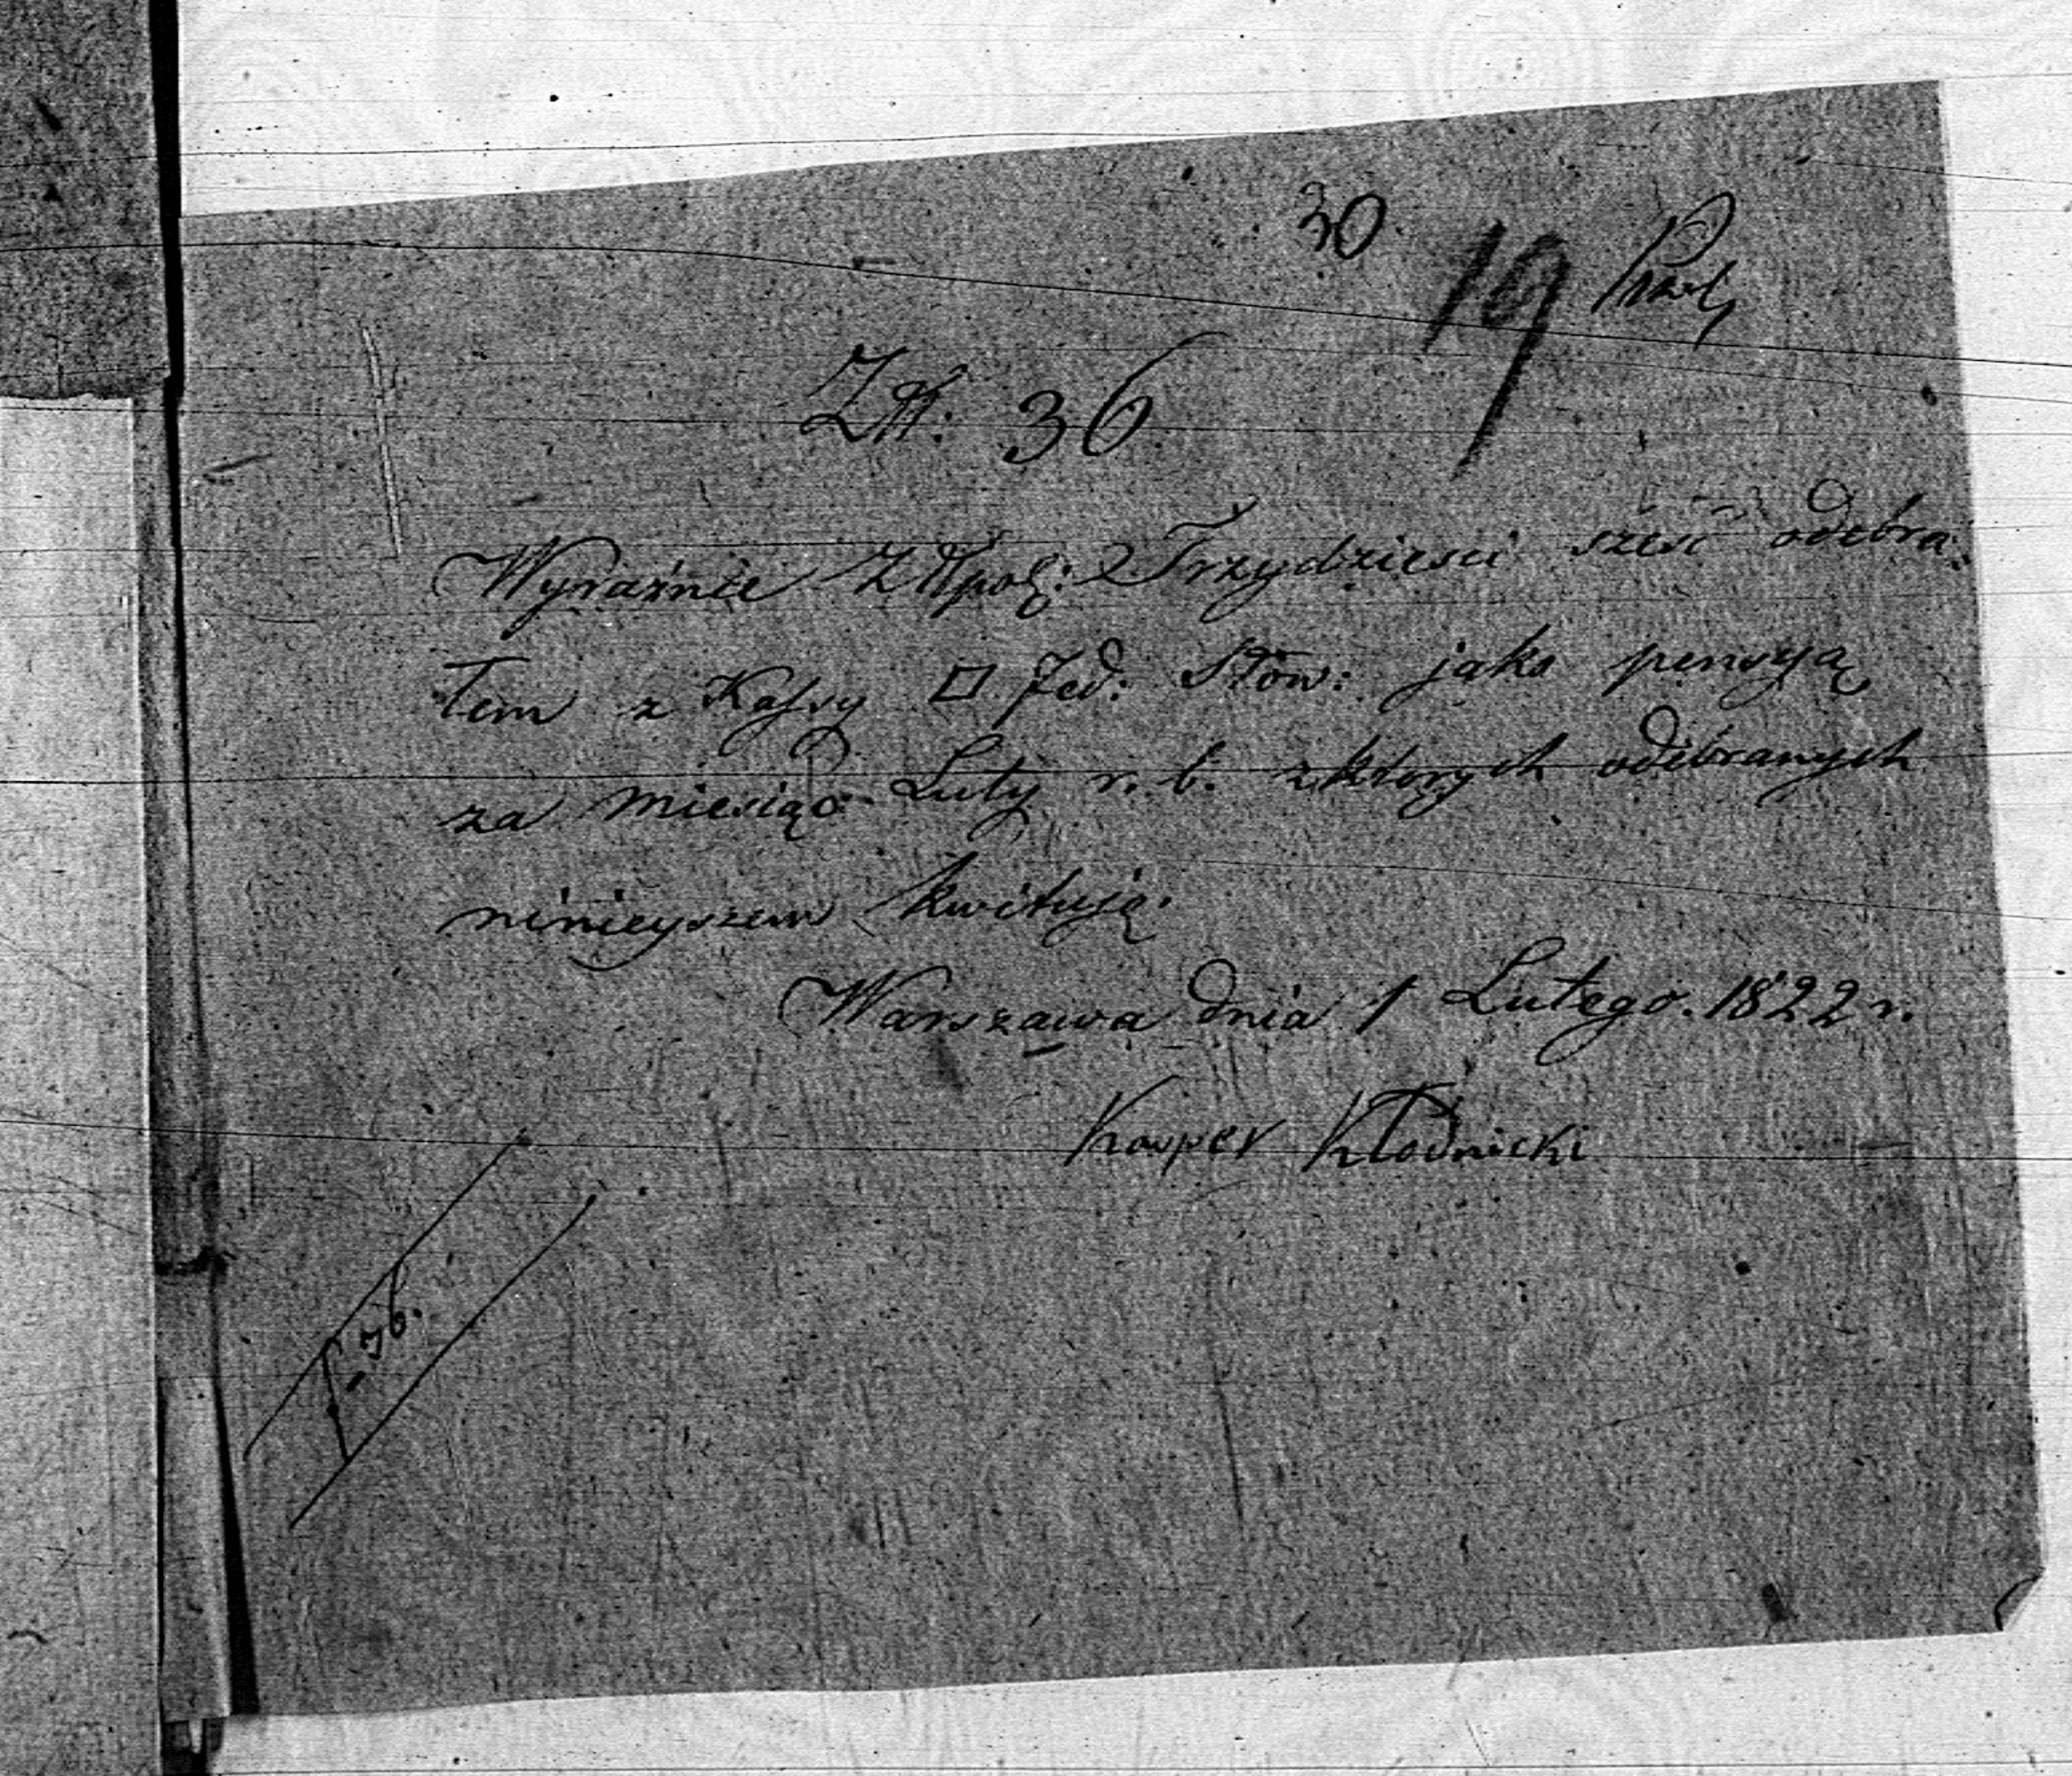 30.
19
Złt: 36.
Wyraźnie Złtpol: Trzydzieści sześć odebra:
łem z Kassy □ Jed: Słow: jako pensyą
za Miesiąc Luty r. b. z których odebranych
ninieyszem kwituję.
Warszawa dnia 1 Lutego. 1822 r.
Kasper Kłodnicki
f. 36.